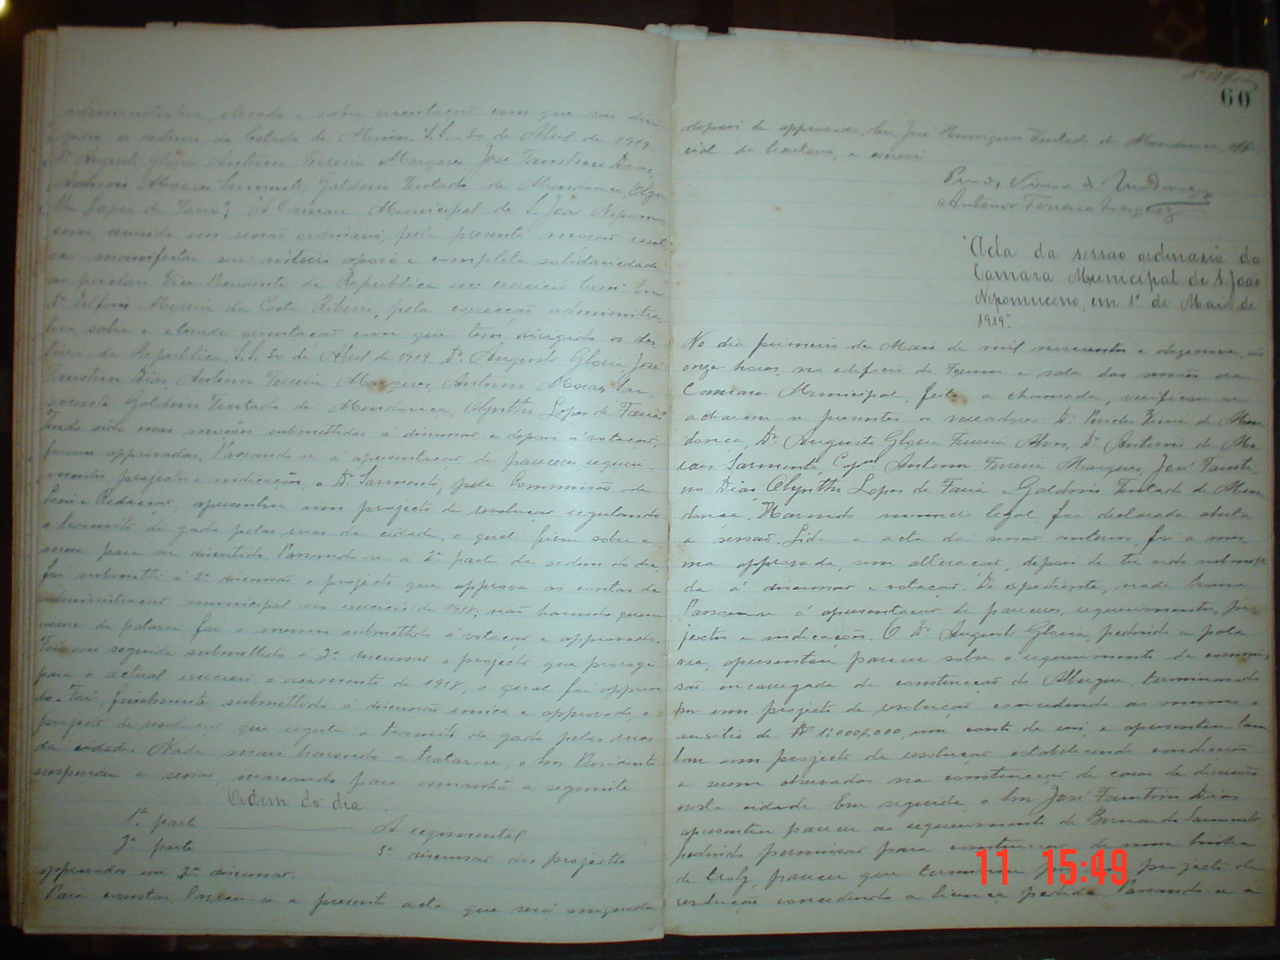 administrativa, elevada e sabia orientação com que são diri-
gidos os destinos do Estado de Minas. S.S. 30 de Abril de 1919.
Dr. Augusto Gloria, Antenor Ferreira Marques, José Faustino Dias,
Antonio Moraes Sarmento, Galdino Furtado de Mendonça, Olyn-
tho Lopes de Faria"; "A Camara Municipal de S. João Nepomu-
ceno, reunida em sessão ordinaria, pela presente moção resol-
ve manifestar seu inteiro apoio e completa solidariedade
ao preclaro Vice Presidente da Republica em exercicio Exmo. Snr.
Dr. Delfim Moreira da Costa Ribeiro, pela administra-
tiva, sabia e elevada orientação com que tem dirigido os des-
tinos da Republica. S.S. 30 de Abril de 1919. Dr. Augusto Gloria, José
Faustino Dias, Antenor Ferreira Marques, Antonio Moraes Sar-
mento, Galdino Furtado de Mendonça, Olyntho Lopes de Faria".
Tendo sido essas moções submettidas á discussão e depois á votação,
foram approvadas. Passando-se á apresentação de pareceres, requeri-
mentos, projectos e indicação, o Dr. Sarmento, pela Commissão de
e Redacção, apresentou um projecto de resolução regulando
o transito de gado pelas ruas da cidade, o qual ficou sobre a
mesa para ser discutido. Passando-se á 2ª parte da ordem do dia
foi submettido á 2ª discussão o projecto que approva as contas da
administração municipal no exercicio de 1918, não havendo quem
usasse da palavra, foi o mesmo submettido á votação e approvado.
Foi em seguida submettido á 2ª discussão o projecto que proroga
para o actual exercicio o orçamento de 1918, o qual foi approva-
do. Foi, finalmente, submettido á discussão unica e approvado, o
projecto de resolução que regula o transito de gado pelas ruas
da cidade. Nada mais havendo a tratar-se, o Snr. Presidente
suspendeu a sessão, marcando para amanhã a seguinte
Ordem do dia
1ª parte A regimental
2ª parte 3ª discussão dos projectos
approvados em 2ª discussão.
Para constar lavrou-se a presente acta que será assignada
60
depois de approvada. Eu, José Henriques Furtado de Mendonça, offi-
cial de Secretaria, a escrevi.
Vieira de Mendonça
Antenor Ferreira Marques
Acta da sessão ordinaria da
Camara Municipal de S. João
Nepomuceno, em 1º de Maio de
1919.
No dia primeiro de Maio de mil novecentos e dezenove, ás
onze horas, no edificio do Forum e sala das sessões da
Camara Municipal, feita a chamada, verificou-se
acharem-se presentes os vereadores: Dr. Pericles Vieira de Men-
donça, Dr. Augusto Gloria Ferreira Alves, Dr. Antonio de Mo-
raes Sarmento, Capm. Antenor Ferreira Marques, José Fausti-
no Dias, Olyntho Lopes de Faria e Galdino Furtado de Men-
donça. Havendo numero legal, foi declarada aberta
a sessão. Lida a acta da sessão anterior, foi a mes-
ma approvada, sem alteração, depois de ter sido submetti-
da a discussão e votação. De expediente, nada houve.
Passou-se á apresentação de pareceres, requerimentos, pro-
jectos e indicações. O Dr. Augusto Gloria, pedindo a pala-
vra, apresentou parecer sobre o requerimento da commis-
são encarregada da construcção do Albergue, terminando
por um projecto de resolução concedendo ás mesmas o
auxilio de 1:000$000, um conto de reis, e apresentou tam-
bem um projecto de resolução estabelecendo condições
a serem observadas na construcção de casas de diversões
nesta cidade. Em seguida, o Snr. José Faustino Dias
apresentou parecer ao requerimento de Bernardo Sarmento
pedindo permissão para construcção de uma
de, parecer que termina por projecto de
resolução concedendo a licença pedida. Passando-se á
11 15:49